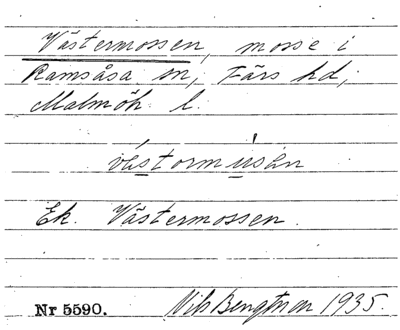 Västermossen, mosse i
Ramsåsa sn, Färs hd,
Malmöh. l.
västormusån
Ek. Västermossen.
Nr 5590. Nils Bengtsson 1935.